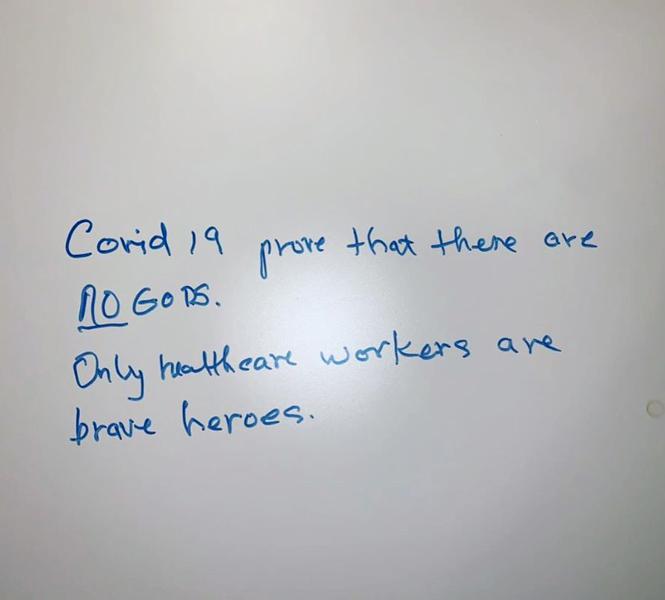 Covid 19 prove that there are
NO GODS.
Only healthcare workers are
brave heroes.